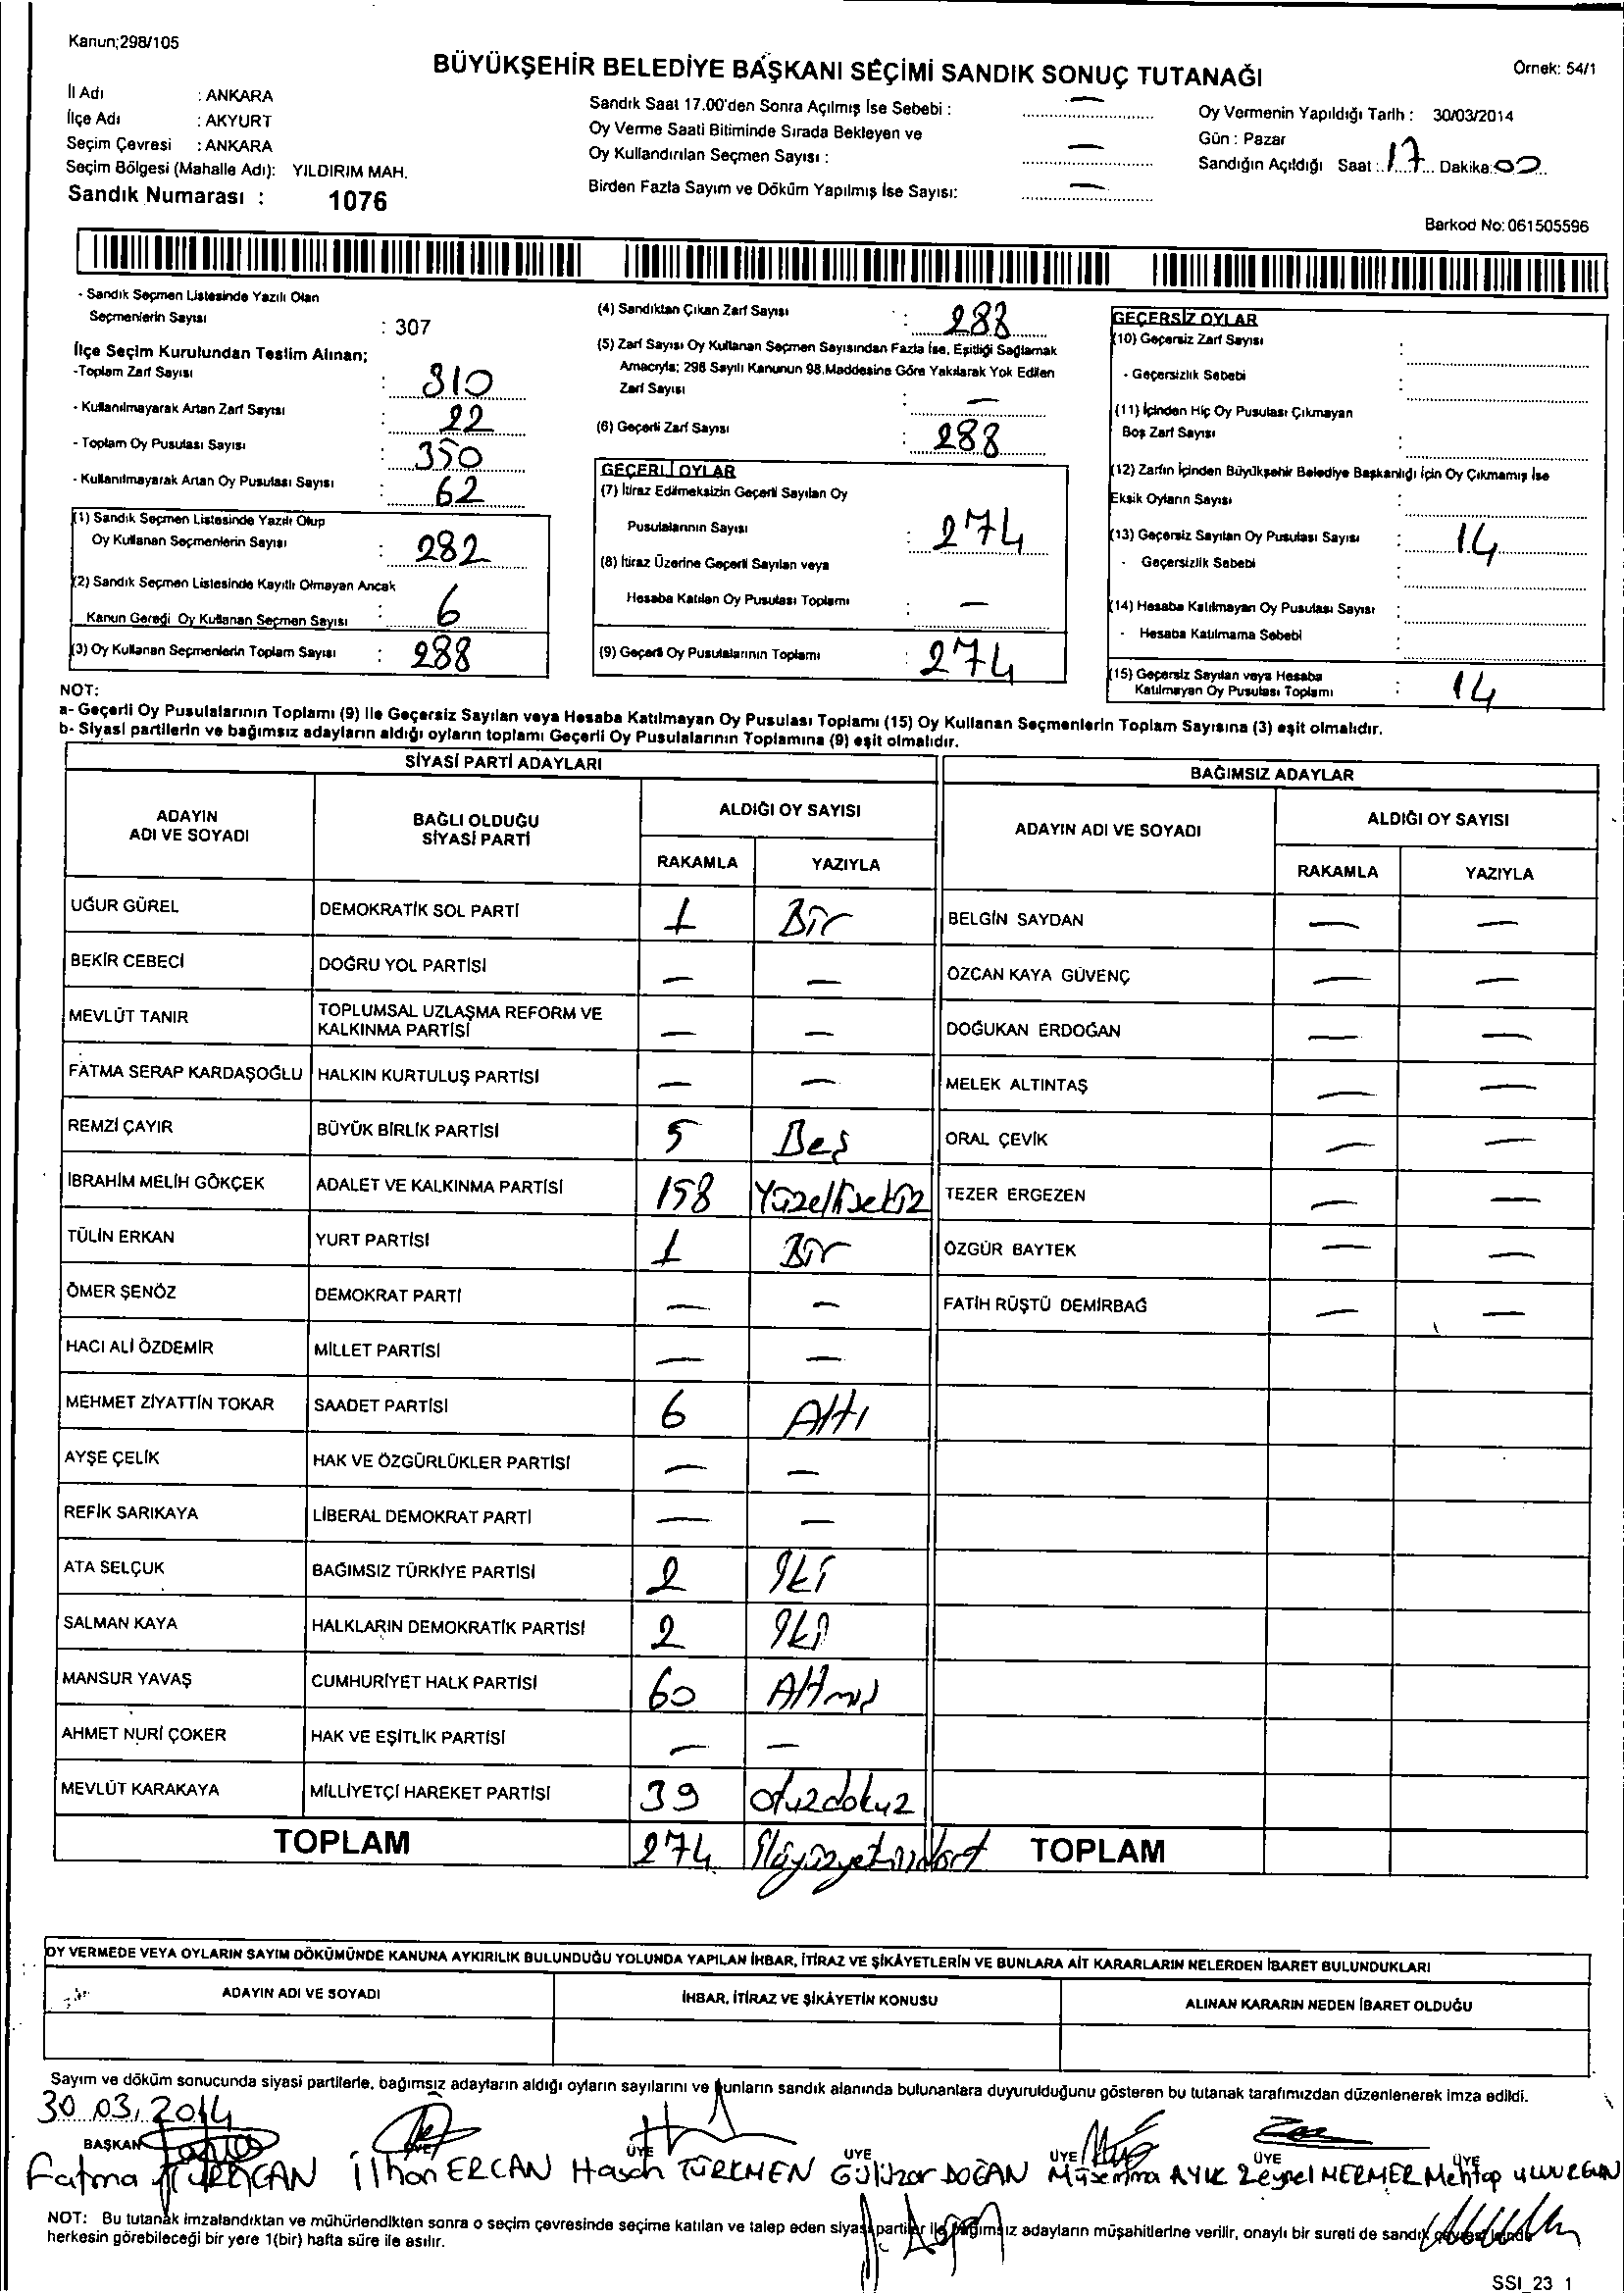 Kanun;298/105
BÜYÜKŞEHİR BELEDİYE BAŞKANI SEÇİMİ SANDIK SONUÇ TUTANAĞI
Örnek: 54/1
İl Adı : ANKARA
İlçe Adı : AKYURT
Seçim Çevresi : ANKARA
Seçim Bölgesi (Mahalle Adı): YILDIRIM MAH.
Sandık Numarası : 1076
Sandık Saat 17.00'den Sonra Açılmış İse Sebebi : —
Oy Verme Saati Bitiminde Sırada Bekleyen ve
Oy Kullandırılan Seçmen Sayısı : —
Birden Fazla Sayım ve Döküm Yapılmış İse Sayısı: —
Oy Vermenin Yapıldığı Tarih : 30/03/2014
Gün : Pazar
Sandığın Açıldığı Saat : 17 Dakika: 00
Barkod No: 061505596
- Sandık Seçmen Listesinde Yazılı Olan
Seçmenlerin Sayısı : 307
İlçe Seçim Kurulundan Teslim Alınan;
-Toplam Zarf Sayısı : 310
- Kullanılmayarak Artan Zarf Sayısı : 22
- Toplam Oy Pusulası Sayısı : 350
- Kullanılmayarak Artan Oy Pusulası Sayısı : 62
(1) Sandık Seçmen Listesinde Yazılı Olup
Oy Kullanan Seçmenlerin Sayısı : 282
(2) Sandık Seçmen Listesinde Kayıtlı Olmayan Ancak
Kanun Gereği Oy Kullanan Seçmen Sayısı : 6
(3) Oy Kullanan Seçmenlerin Toplam Sayısı : 288
(4) Sandıktan Çıkan Zarf Sayısı : 288
(5) Zarf Sayısı Oy Kullanan Seçmen Sayısından Fazla İse, Eşitliği Sağlamak
Amacıyla; 298 Sayılı Kanunun 98.Maddesine Göre Yakılarak Yok Edilen
Zarf Sayısı : —
(6) Geçerli Zarf Sayısı : 288
GEÇERLİ OYLAR
(7) İtiraz Edilmeksizin Geçerli Sayılan Oy
Pusulalarının Sayısı : 274
(8) İtiraz Üzerine Geçerli Sayılan veya
Hesaba Katılan Oy Pusulası Toplamı : —
(9) Geçerli Oy Pusulalarının Toplamı : 274
GEÇERSİZ OYLAR
(10) Geçersiz Zarf Sayısı :
- Geçersizlik Sebebi :
(11) İçinden Hiç Oy Pusulası Çıkmayan
Boş Zarf Sayısı :
(12) Zarfın İçinden Büyükşehir Belediye Başkanlığı için Oy Çıkmamış İse
Eksik Oyların Sayısı :
(13) Geçersiz Sayılan Oy Pusulası Sayısı : 14
- Geçersizlik Sebebi :
(14) Hesaba Katılmayan Oy Pusulası Sayısı :
- Hesaba Katılmama Sebebi :
(15) Geçersiz Sayılan veya Hesaba
Katılmayan Oy Pusulası Toplamı : 14
NOT:
a- Geçerli Oy Pusulalarının Toplamı (9) İle Geçersiz Sayılan veya Hesaba Katılmayan Oy Pusulası Toplamı (15) Oy Kullanan Seçmenlerin Toplam Sayısına (3) eşit olmalıdır.
b- Siyasi partilerin ve bağımsız adayların aldığı oyların toplamı Geçerli Oy Pusulalarının Toplamına (9) eşit olmalıdır.
SİYASİ PARTİ ADAYLARI
BAĞIMSIZ ADAYLAR
ADAYIN ADI VE SOYADI
BAĞLI OLDUĞU SİYASİ PARTİ
ALDIĞI OY SAYISI
ADAYIN ADI VE SOYADI
ALDIĞI OY SAYISI
RAKAMLA YAZIYLA RAKAMLA YAZIYLA
UĞUR GÜREL DEMOKRATİK SOL PARTİ 1 Bir BELGİN SAYDAN — —
BEKİR CEBECİ DOĞRU YOL PARTİSİ — — ÖZCAN KAYA GÜVENÇ — —
MEVLÜT TANIR TOPLUMSAL UZLAŞMA REFORM VE
KALKINMA PARTİSİ — — DOĞUKAN ERDOĞAN — —
FATMA SERAP KARDAŞOĞLU HALKIN KURTULUŞ PARTİSİ — — MELEK ALTINTAŞ — —
REMZİ ÇAYIR BÜYÜK BİRLİK PARTİSİ 5 Beş ORAL ÇEVİK — —
İBRAHİM MELİH GÖKÇEK ADALET VE KALKINMA PARTİSİ 158 Yüzellisekiz TEZER ERGEZEN — —
TÜLİN ERKAN YURT PARTİSİ 1 Bir ÖZGÜR BAYTEK — —
ÖMER ŞENÖZ DEMOKRAT PARTİ — — FATİH RÜŞTÜ DEMİRBAĞ — —
HACI ALİ ÖZDEMİR MİLLET PARTİSİ — —
MEHMET ZİYATTİN TOKAR SAADET PARTİSİ 6 Altı
AYŞE ÇELİK HAK VE ÖZGÜRLÜKLER PARTİSİ — —
REFİK SARIKAYA LİBERAL DEMOKRAT PARTİ — —
ATA SELÇUK BAĞIMSIZ TÜRKİYE PARTİSİ 2 İki
SALMAN KAYA HALKLARIN DEMOKRATİK PARTİSİ 2 İki
MANSUR YAVAŞ CUMHURİYET HALK PARTİSİ 60 Altmış
AHMET NURİ ÇOKER HAK VE EŞİTLİK PARTİSİ — —
MEVLÜT KARAKAYA MİLLİYETÇİ HAREKET PARTİSİ 39 otuzdokuz
TOPLAM 274 İkiyüzyetmişdört TOPLAM
OY VERMEDE VEYA OYLARIN SAYIM DÖKÜMÜNDE KANUNA AYKIRILIK BULUNDUĞU YOLUNDA YAPILAN İHBAR, İTİRAZ VE ŞİKÂYETLERİN VE BUNLARA AİT KARARLARIN NELERDEN İBARET BULUNDUKLARI
ADAYIN ADI VE SOYADI İHBAR, İTİRAZ VE ŞİKÂYETİN KONUSU ALINAN KARARIN NEDEN İBARET OLDUĞU
Sayım ve döküm sonucunda siyasi partilerle, bağımsız adayların aldığı oyların sayılarını ve bunların sandık alanında bulunanlara duyurulduğunu gösteren bu tutanak tarafımızdan düzenlenerek imza edildi.
30.03.2014
BAŞKAN ÜYE ÜYE ÜYE ÜYE ÜYE ÜYE
Fatma İlhan ERCAN Hasan TÜRKMEN Gülüzar DOĞAN Müsemma AYIK Zeynel MERMER Mehtap
NOT: Bu tutanak imzalandıktan ve mühürlendikten sonra o seçim çevresinde seçime katılan ve talep eden siyasi partiler ile bağımsız adayların müşahitlerine verilir, onaylı bir sureti de sandık çevresi içinde
herkesin görebileceği bir yere 1(bir) hafta süre ile asılır.
SSI_23 1